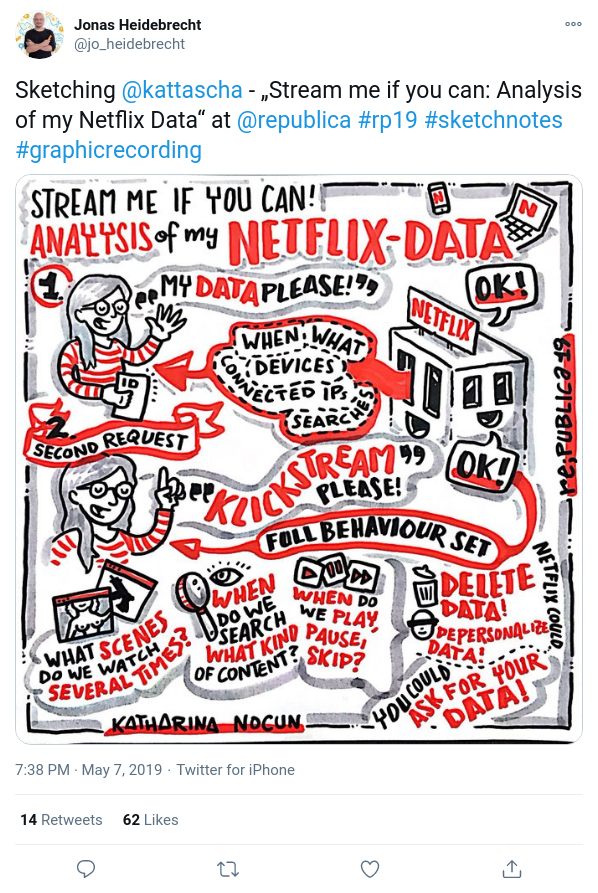 Jonas Heidebrecht
@jo_heidebrecht
Sketching @kattascha - „Stream me if you can: Analysis
of my Netflix Data“ at @republica #rp19 #sketchnotes
#graphicrecording
STREAM ME IF YOU CAN!
N
N
ANALYSIS of my NETFLIX-DATA
1.
MY DATA PLEASE!
OK!
NETFLIX
WHEN, WHAT
DEVICES
CONNECTED IPs,
SEARCHES
ID
2.
SECOND REQUEST
KLICKSTREAM
PLEASE!
OK!
FULL BEHAVIOUR SET
re:PUBLICA 2019
WHAT SCENES
DO WE WATCH
SEVERAL TIMES?
WHEN
DO WE
SEARCH
WHAT KIND
OF CONTENT?
WHEN DO
WE PLAY,
PAUSE,
SKIP?
NETFLIX COULD
DELETE
DATA!
DEPERSONALIZE
DATA!
YOU COULD
ASK FOR YOUR
DATA!
KATHARINA NOCUN
7:38 PM · May 7, 2019 · Twitter for iPhone
14 Retweets 62 Likes